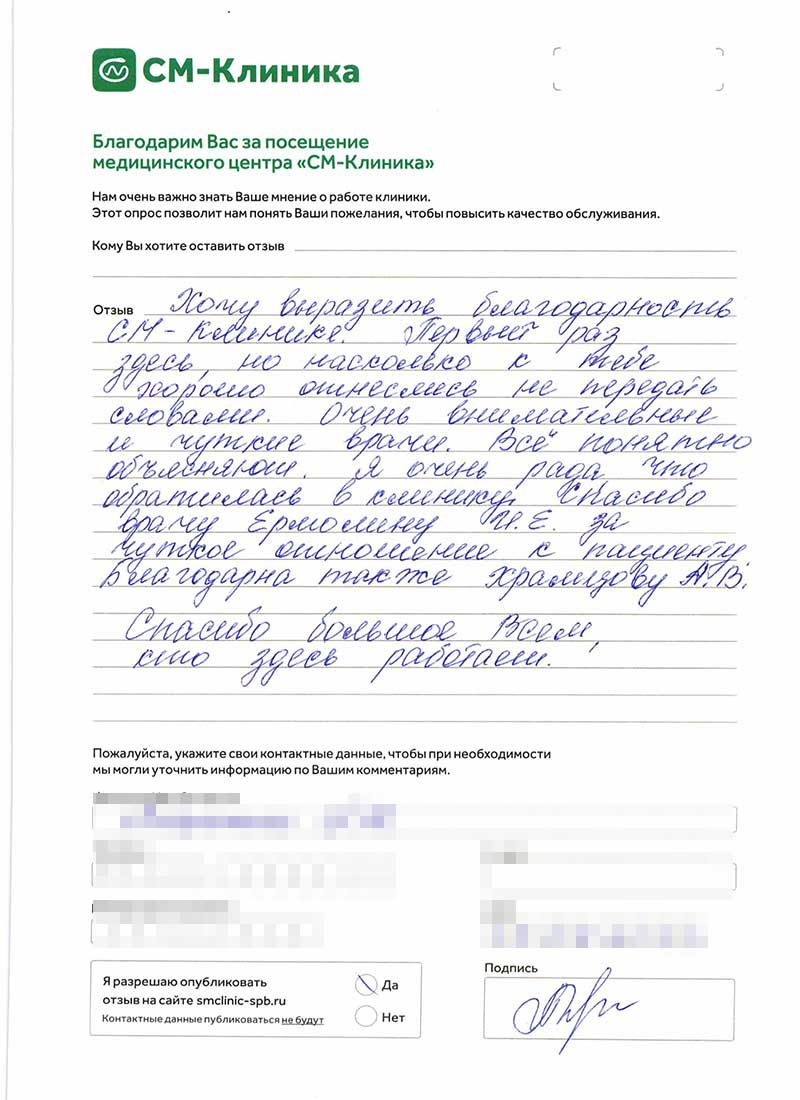 СМ-Клиника
Благодарим Вас за посещение
медицинского центра «СМ-Клиника»
Нам очень важно знать Ваше мнение о работе клиники.
Этот опрос позволит нам понять Ваши пожелания, чтобы повысить качество обслуживания.
Кому Вы хотите оставить отзыв
Отзыв Хочу выразить благодарность
СМ-клинике. Первый раз
здесь, но насколько к тебе
хорошо отнеслись не передать
словами. Очень внимательные
и чуткие врачи. Всё понятно
объясняют. Я очень рада что
обратилась в клинику. Спасибо
врачу Ермолину И.Е. за
чуткое отношение к пациенту.
Благодарна также Храмцову А.В.
Спасибо большое Всем,
кто здесь работает.
Пожалуйста, укажите свои контактные данные, чтобы при необходимости
мы могли уточнить информацию по Вашим комментариям.
Я разрешаю опубликовать
отзыв на сайте smclinic-spb.ru
Контактные данные публиковаться не будут
Да
Нет
Подпись